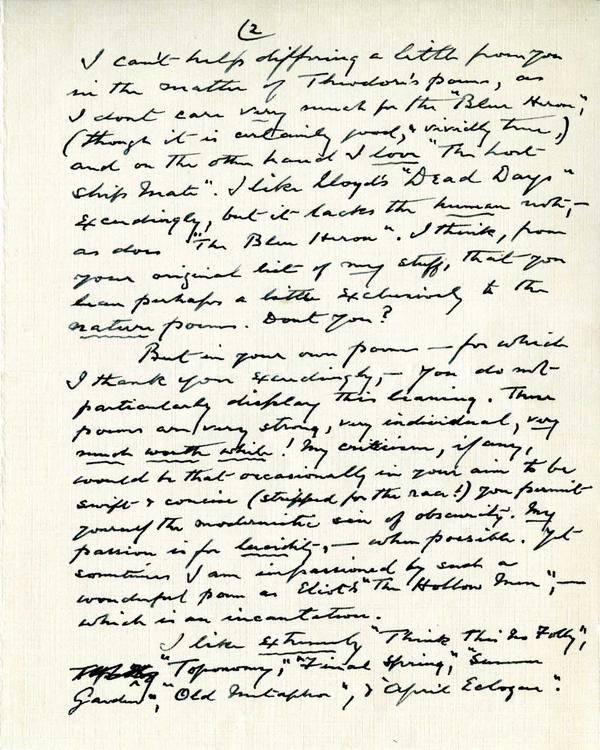 (2
I can't help differing a little from you
in the matter of Theodore's poems, as
I dont care very much for the "Blue Heron",
(though it is certainly good, & vividly true,)
and on the other hand I love "The Lost
Ship Mate". I like Lloyd's "Dead Days"
exceedingly, but it lacks the human note, —
as does "The Blue Heron". I think, from
your original list of my stuff, that you
lean perhaps a little exclusively to the
nature poems. Dont you?
But in your own poems — for which
I thank you exceedingly, — you do not
particularly display this leaning. These
poems are very strong, very individual, very
much worth while! My criticism, if any,
would be that occasionally in your aim to be
swift & concise (stripped for the race!) you permit
yourself the modernistic sin of obscurity. My
passion is for lucidity, — when possible. Yet
sometimes I am impassioned by such a
wonderful poem as Eliot's "The Hollow Men", —
which is an incantation.
I like extremely "Think This No Folly",
"Toponomy," "Final Spring", "Summer
Garden", "Old Metaphor", & "April Eclogue".